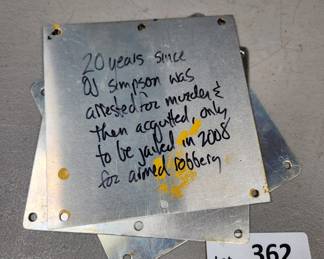 20 years since
OJ simpson was
arrested for murder &
then acquitted, only
to be jailed in 2008
for armed robbery
Lot 362